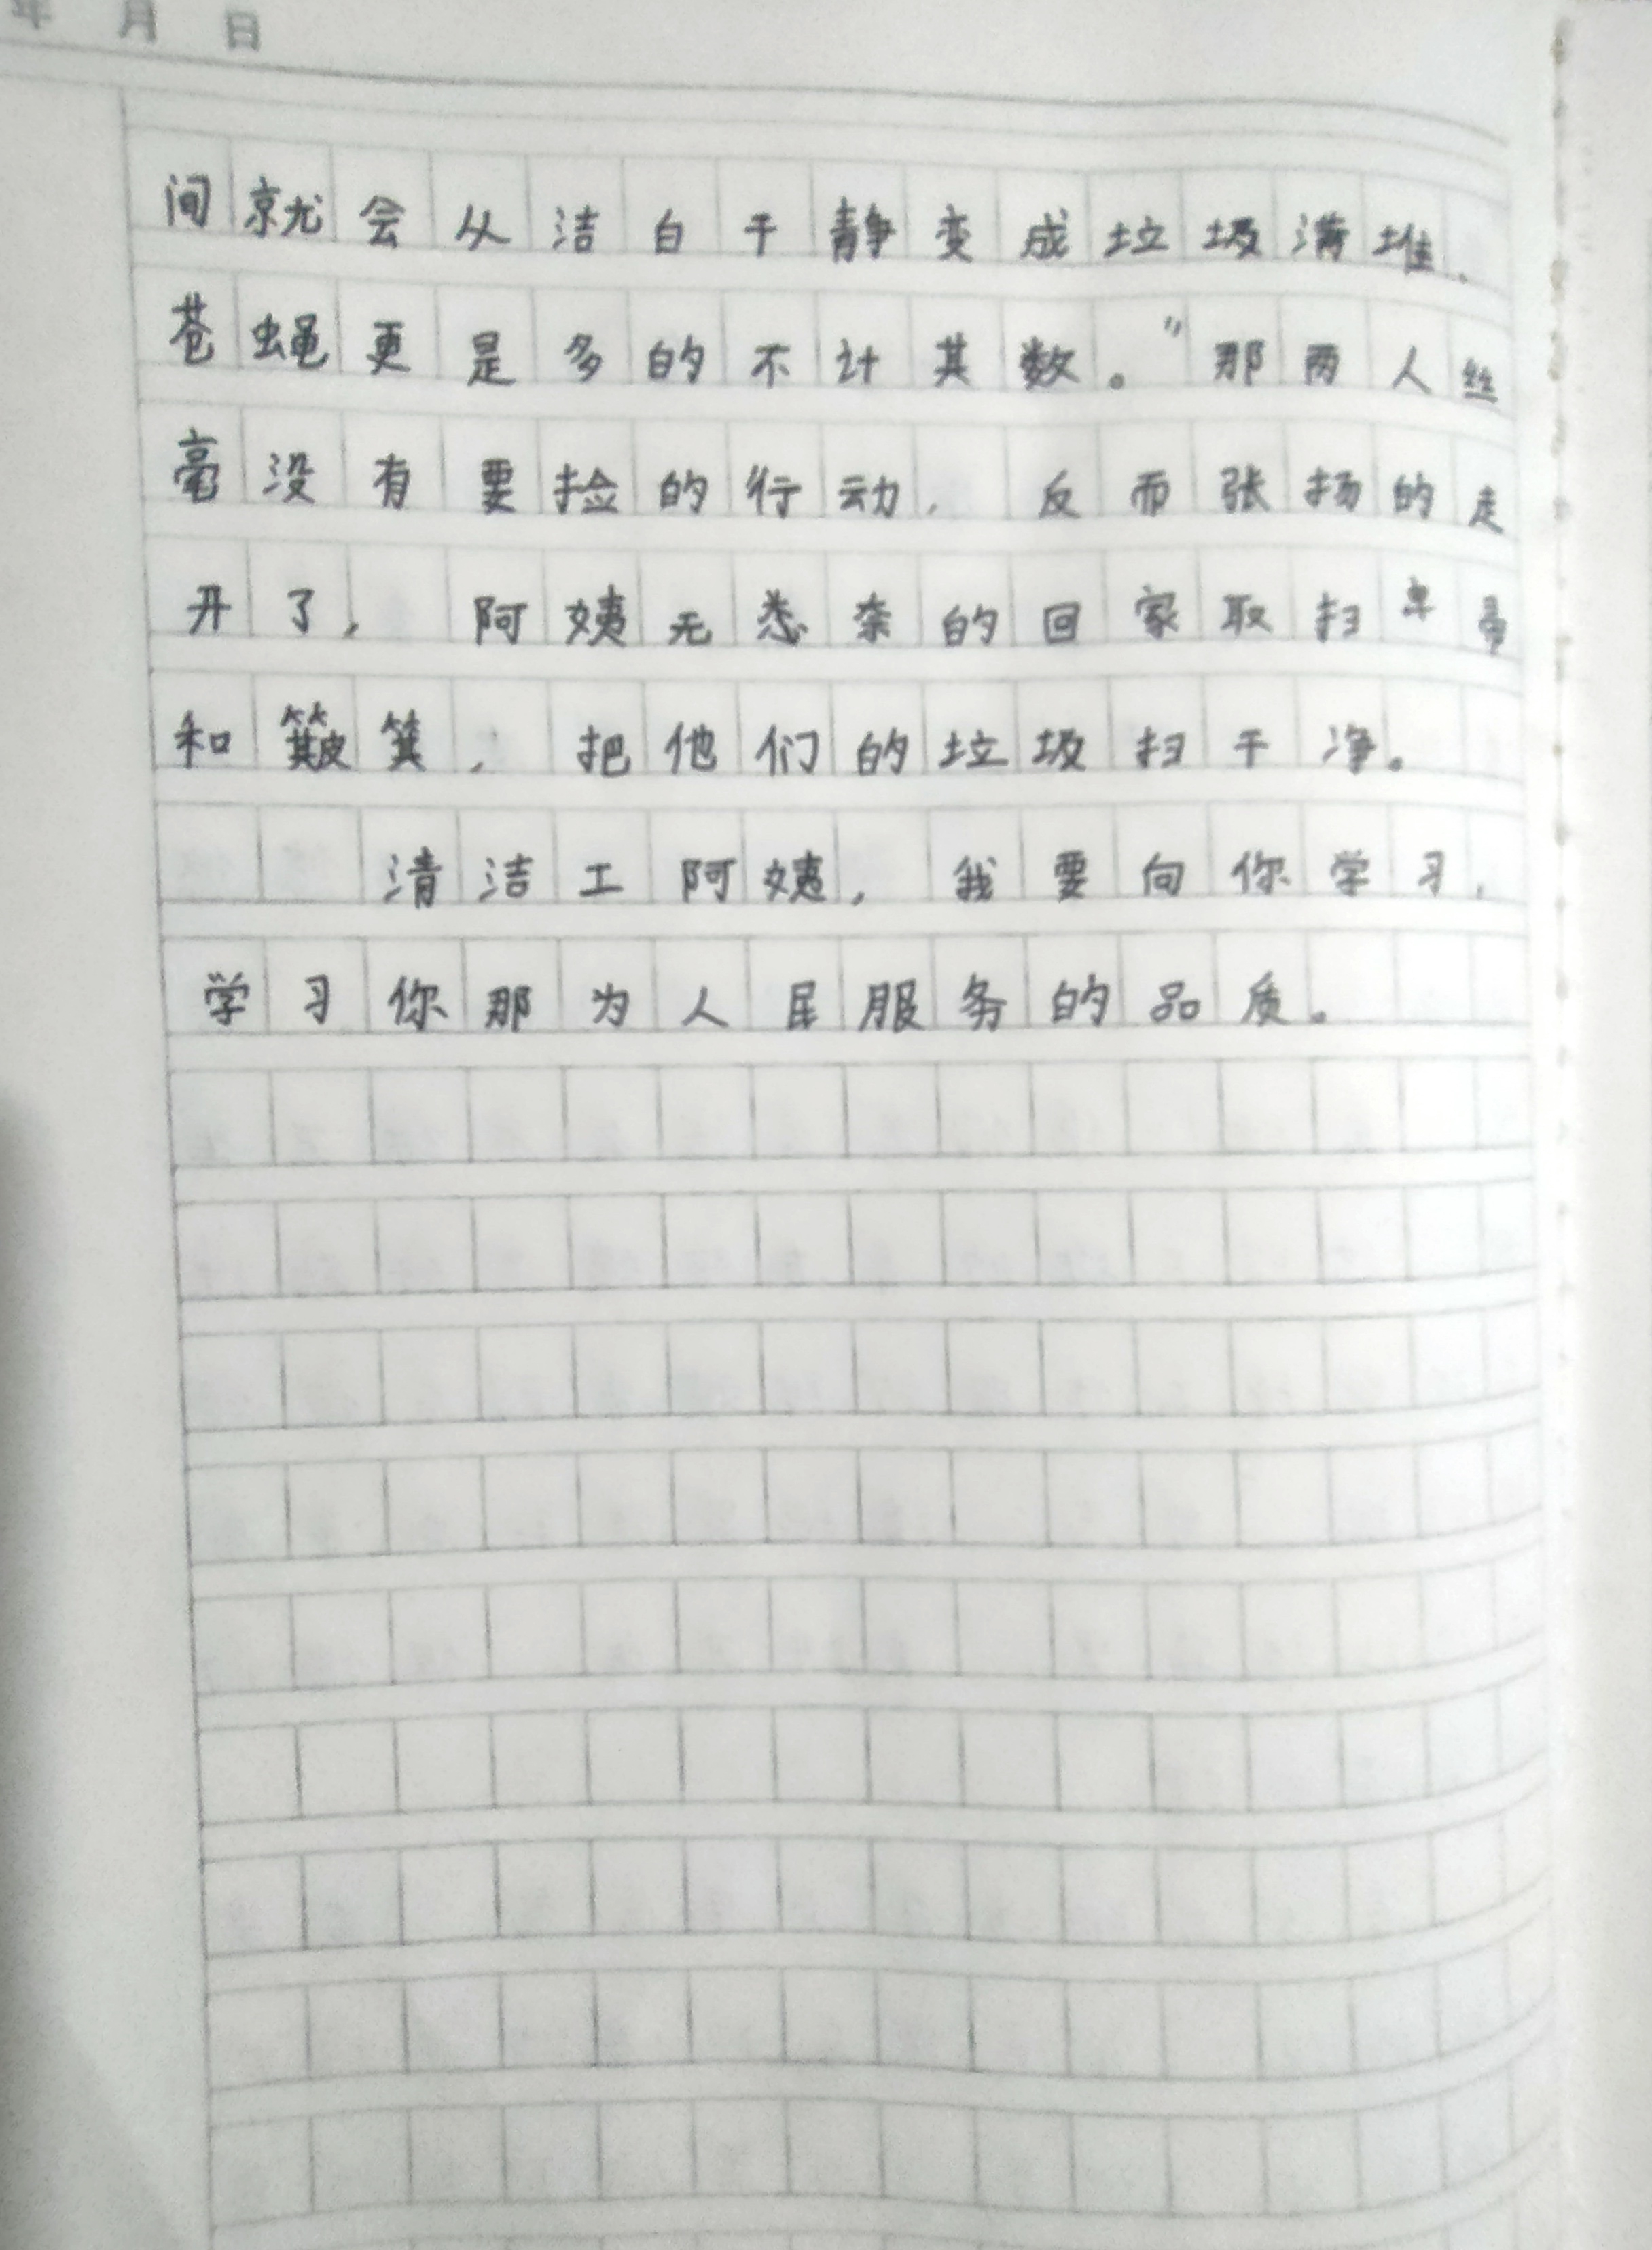 年 月 日
间就会从洁白干静变成垃圾满堆、
苍蝇更是多的不计其数。”那两人丝
毫没有要捡的行动，反而张扬的走
开了，阿姨无悉奈的回家取扫帚
和簸箕，把他们的垃圾扫干净。
清洁工阿姨，我要向你学习，
学习你那为人民服务的品质。